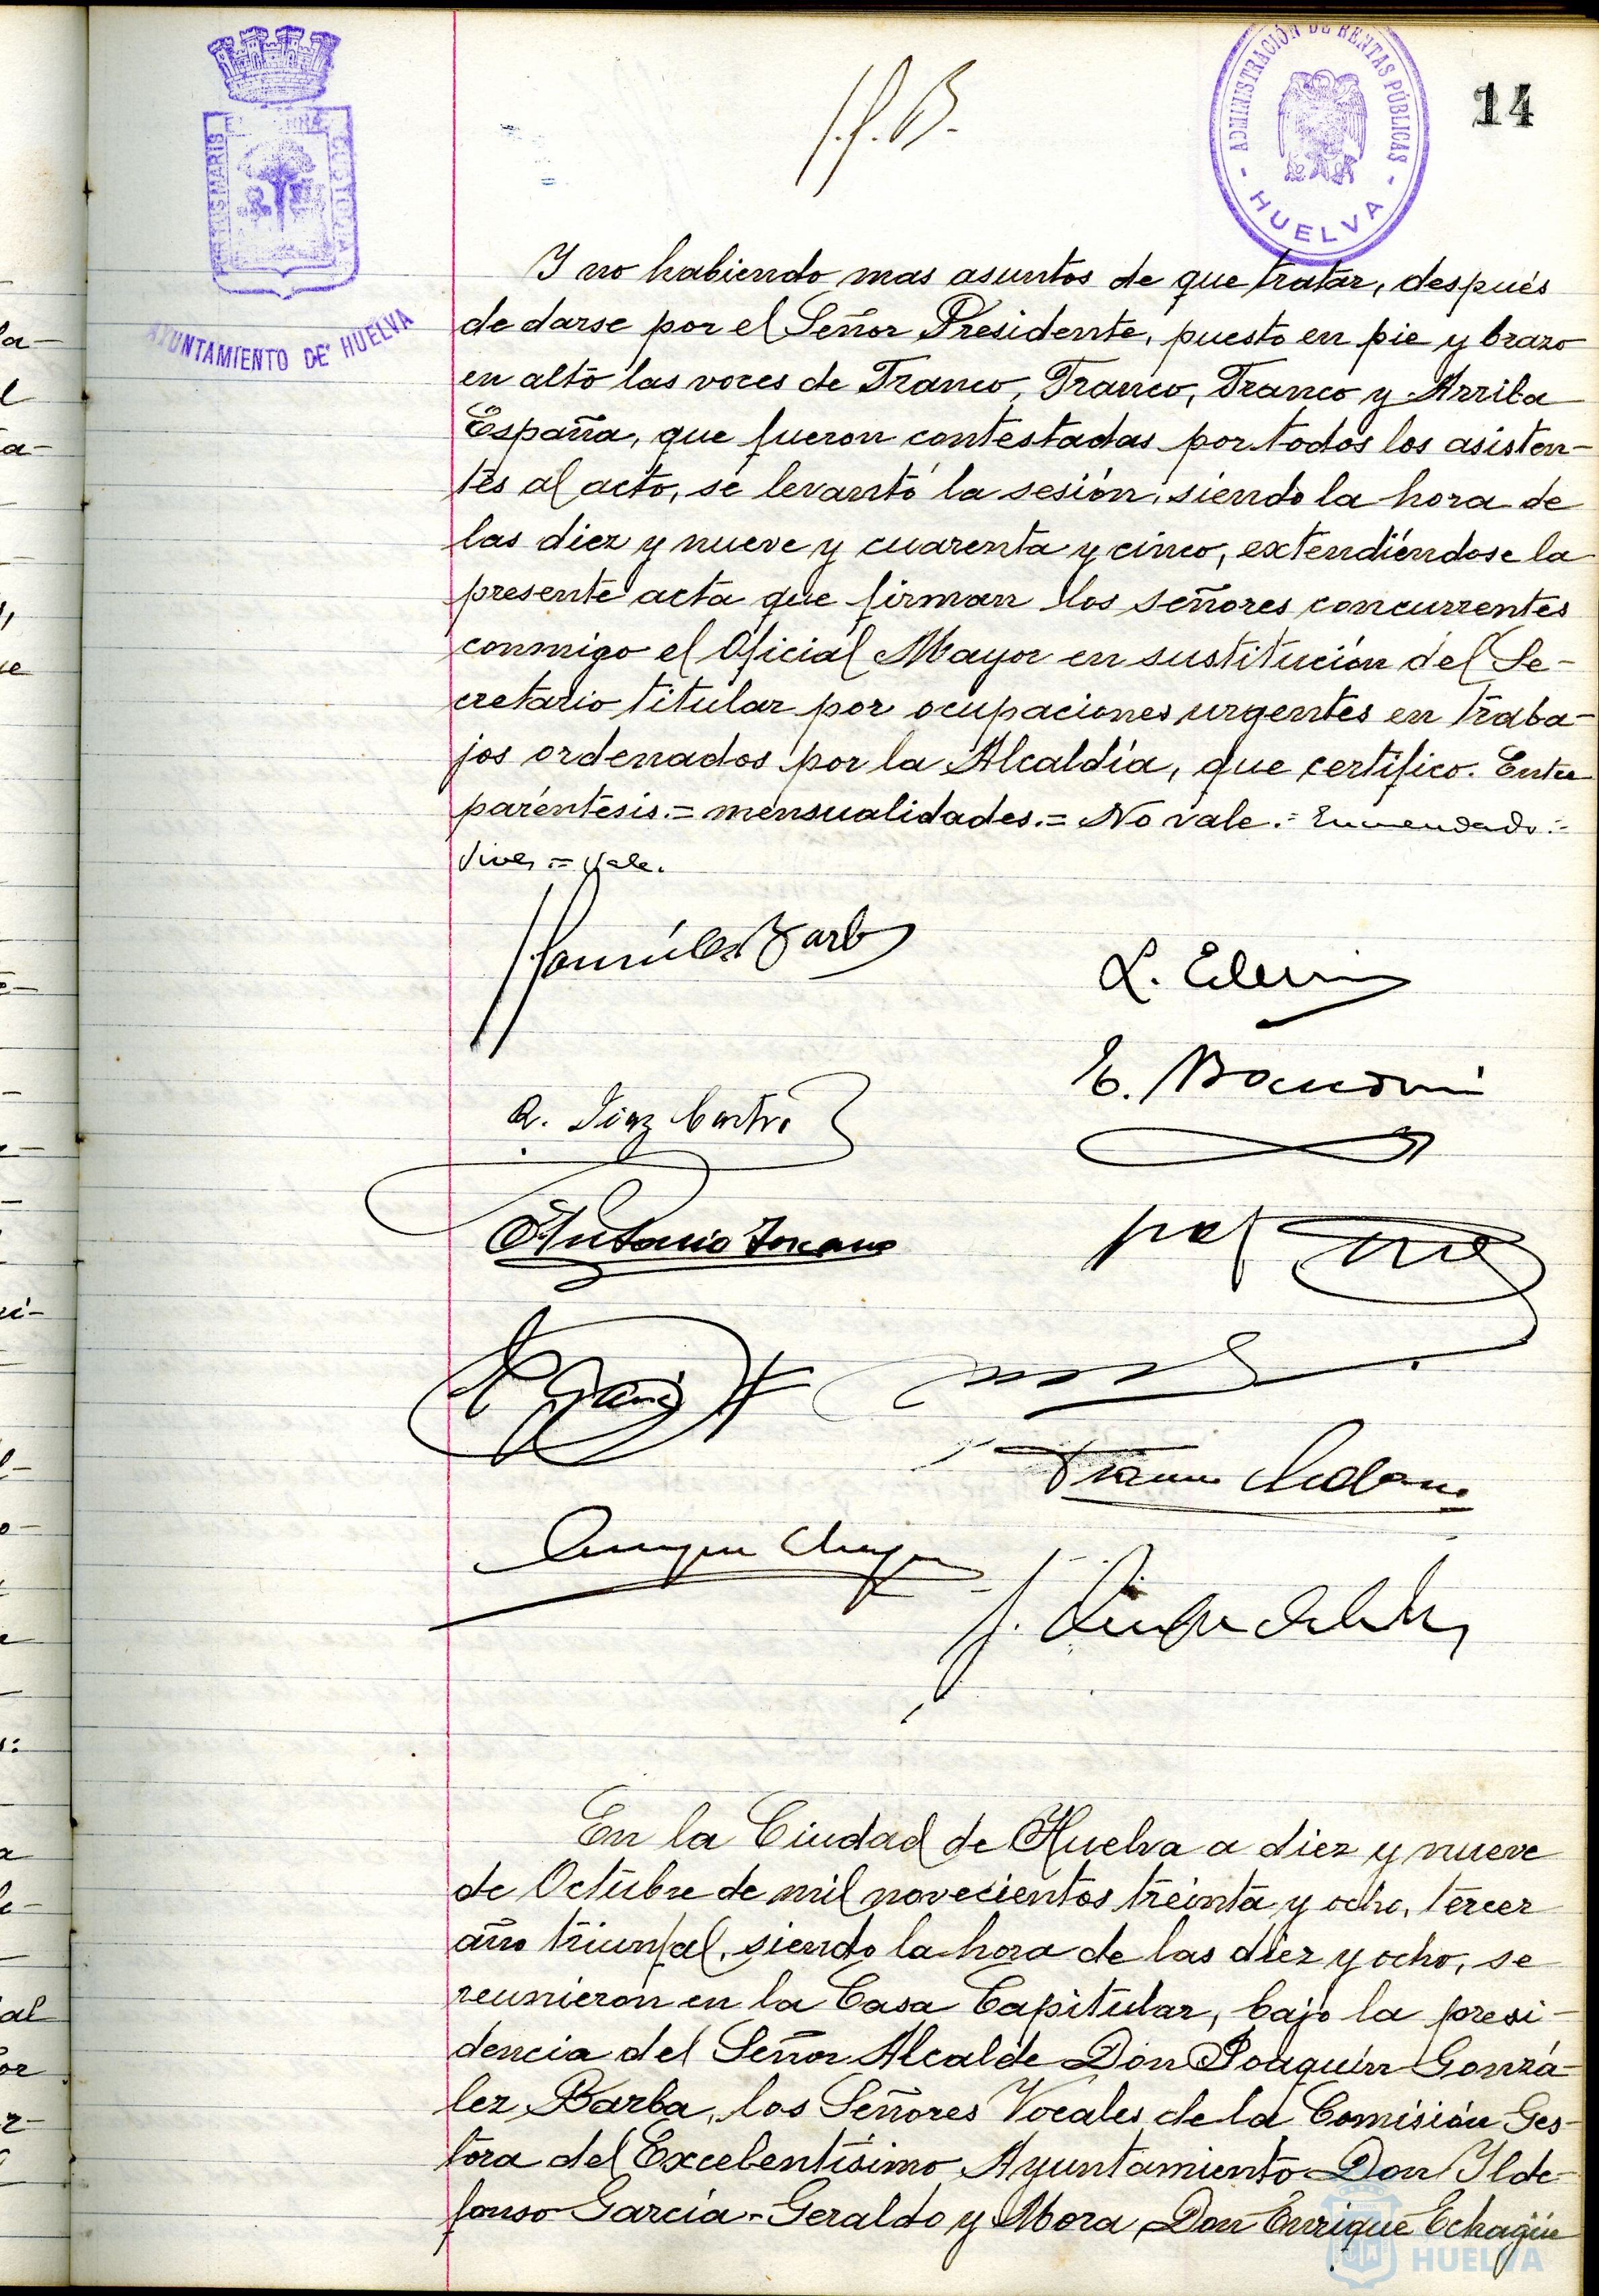 ADMINISTRACIÓN DE RENTAS PÚBLICAS
- HUELVA -
14
PORTUS MARIS ET TERRAE CUSTODIA
AYUNTAMIENTO DE HUELVA
Y no habiendo mas asuntos de que tratar, después
de darse por el Señor Presidente, puesto en pie y brazo
en alto las voces de Franco, Franco, Franco y Arriba
España, que fueron contestadas por todos los asisten-
tes al acto, se levantó la sesión, siendo la hora de
las diez y nueve y cuarenta y cinco, extendiéndose la
presente acta que firman los señores concurrentes
conmigo el Oficial Mayor en sustitución del Se-
cretario titular por ocupaciones urgentes en traba-
jos ordenados por la Alcaldía, que certifico. Entre
paréntesis.= mensualidades.= No vale.= Enmendado:-
= Vale.
González Barba
E.
A. Díaz Castro
Antonio Toscano
Enrique Echagüe
En la Ciudad de Huelva a diez y nueve
de Octubre de mil novecientos treinta y ocho, tercer
año triunfal, siendo la hora de las diez y ocho, se
reunieron en la Casa Capitular, bajo la presi-
dencia del Señor Alcalde Don Joaquín Gonzá-
lez Barba, los Señores Vocales de la Comisión Ges-
tora del Excelentísimo Ayuntamiento Don Ilde-
fonso García-Geraldo y Mora, Don Enrique Echagüe
HUELVA